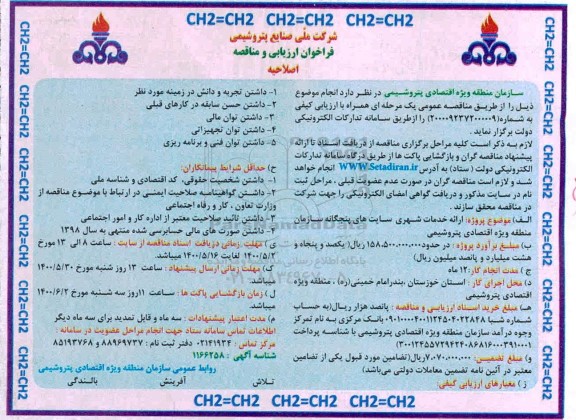 CH2=CH2 CH2=CH2 CH2=CH2
شرکت ملّی صنایع پتروشیمی
فراخوان ارزیابی و مناقصه
اصلاحیه
سازمان منطقه ویژه اقتصادی پتروشیمی در نظر دارد انجام موضوع
ذیل را از طریق مناقصه عمومی یک مرحله ای همراه با ارزیابی کیفی
به شماره(۲۰۰۰۰۹۲۳۷۲۰۰۰۰۰۹) را از طریق سامانه تدارکات الکترونیکی
دولت برگزار نماید.
لازم به ذکر است کلیه مراحل برگزاری مناقصه از دریافت اسناد تا ارائه
پیشنهاد مناقصه گران و بازگشایی پاکت ها از طریق درگاه سامانه تدارکات
الکترونیکی دولت ( ستاد) به آدرس www.Setadiran.ir انجام خواهد
شد و لازم است مناقصه گران در صورت عدم عضویت قبلی ، مراحل ثبت
نام در سایت مذکور و دریافت گواهی امضای الکترونیکی را جهت شرکت
در مناقصه محقق سازند .
الف) موضوع پروژه: ارائه خدمات شهری سایت های پنجگانه سازمان
منطقه ویژه اقتصادی پتروشیمی
ب) مبلغ برآورد پروژه : در حدود ۱۵۸.۵۰۰.۰۰۰.۰۰۰ ریال( یکصد و پنجاه و
هشت میلیارد و پانصد میلیون ریال)
ج ) مدت انجام کار: ۱۲ ماه
د) محل اجرای کار: استان خوزستان ،بندرامام خمینی(ره) ، منطقه ویژه
اقتصادی پتروشیمی
هـ) مبلغ خرید اسناد ارزیابی و مناقصه : پانصد هزار ریال(به حساب
شماره شبا بانک مرکزی به نام تمرکز
وجوه درآمد سازمان منطقه ویژه اقتصادی پتروشیمی با شناسه پرداخت
و) مبلغ تضمین: ۷.۰۷۰.۰۰۰.۰۰۰ریال(تضامین مورد قبول یکی از تضامین
معتبر در آئین نامه تضمین معاملات دولتی می باشد)
ز ) معیارهای ارزیابی کیفی:
۱- داشتن تجربه و دانش در زمینه مورد نظر
۲- داشتن حسن سابقه در کارهای قبلی
۳- داشتن توان مالی
۴- داشتن توان تجهیزاتی
۵- داشتن توان فنی و برنامه ریزی
ح) حداقل شرایط پیمانکاران:
۱- داشتن شخصیت حقوقی، کد اقتصادی و شناسه ملی
۲- داشتن گواهینامه صلاحیت ایمنی در ارتباط با موضوع مناقصه از
وزارت تعاون ، کار و رفاه اجتماعی
۳- داشتن تائید صلاحیت معتبر از اداره کار و امور اجتماعی
۴- داشتن صورت های مالی حسابرسی شده منتهی به سال ۱۳۹۸
ی ) مهلت زمانی دریافت اسناد مناقصه از سایت : ساعت ۸ الی ۱۳ مورخ
۱۴۰۰/۵/۲ لغایت ۱۴۰۰/۵/۱۶ میباشد.
ک) مهلت زمانی ارسال پیشنهاد : ساعت ۱۳ روز شنبه مورخ ۱۴۰۰/۵/۳۰
میباشد
ل ) زمان بازگشایی پاکت ها : ساعت ۱۱روز سه شنبه مورخ ۱۴۰۰/۶/۲
میباشد.
م) مدت اعتبار پیشنهادات : سه ماه و قابل تمدید برای سه ماه دیگر
اطلاعات تماس سامانه ستاد جهت انجام مراحل عضویت در سامانه :
مرکز تماس : ۰۲۱۴۱۹۳۴ دفتر ثبت نام : ۸۸۹۶۹۷۳۷ و ۸۵۱۹۳۷۶۸
شناسه آگهی : ۱۱۶۶۲۵۸
روابط عمومی سازمان منطقه ویژه اقتصادی پتروشیمی
تـلاش آفرینش بالندگی
CH2=CH2 CH2=CH2 CH2=CH2